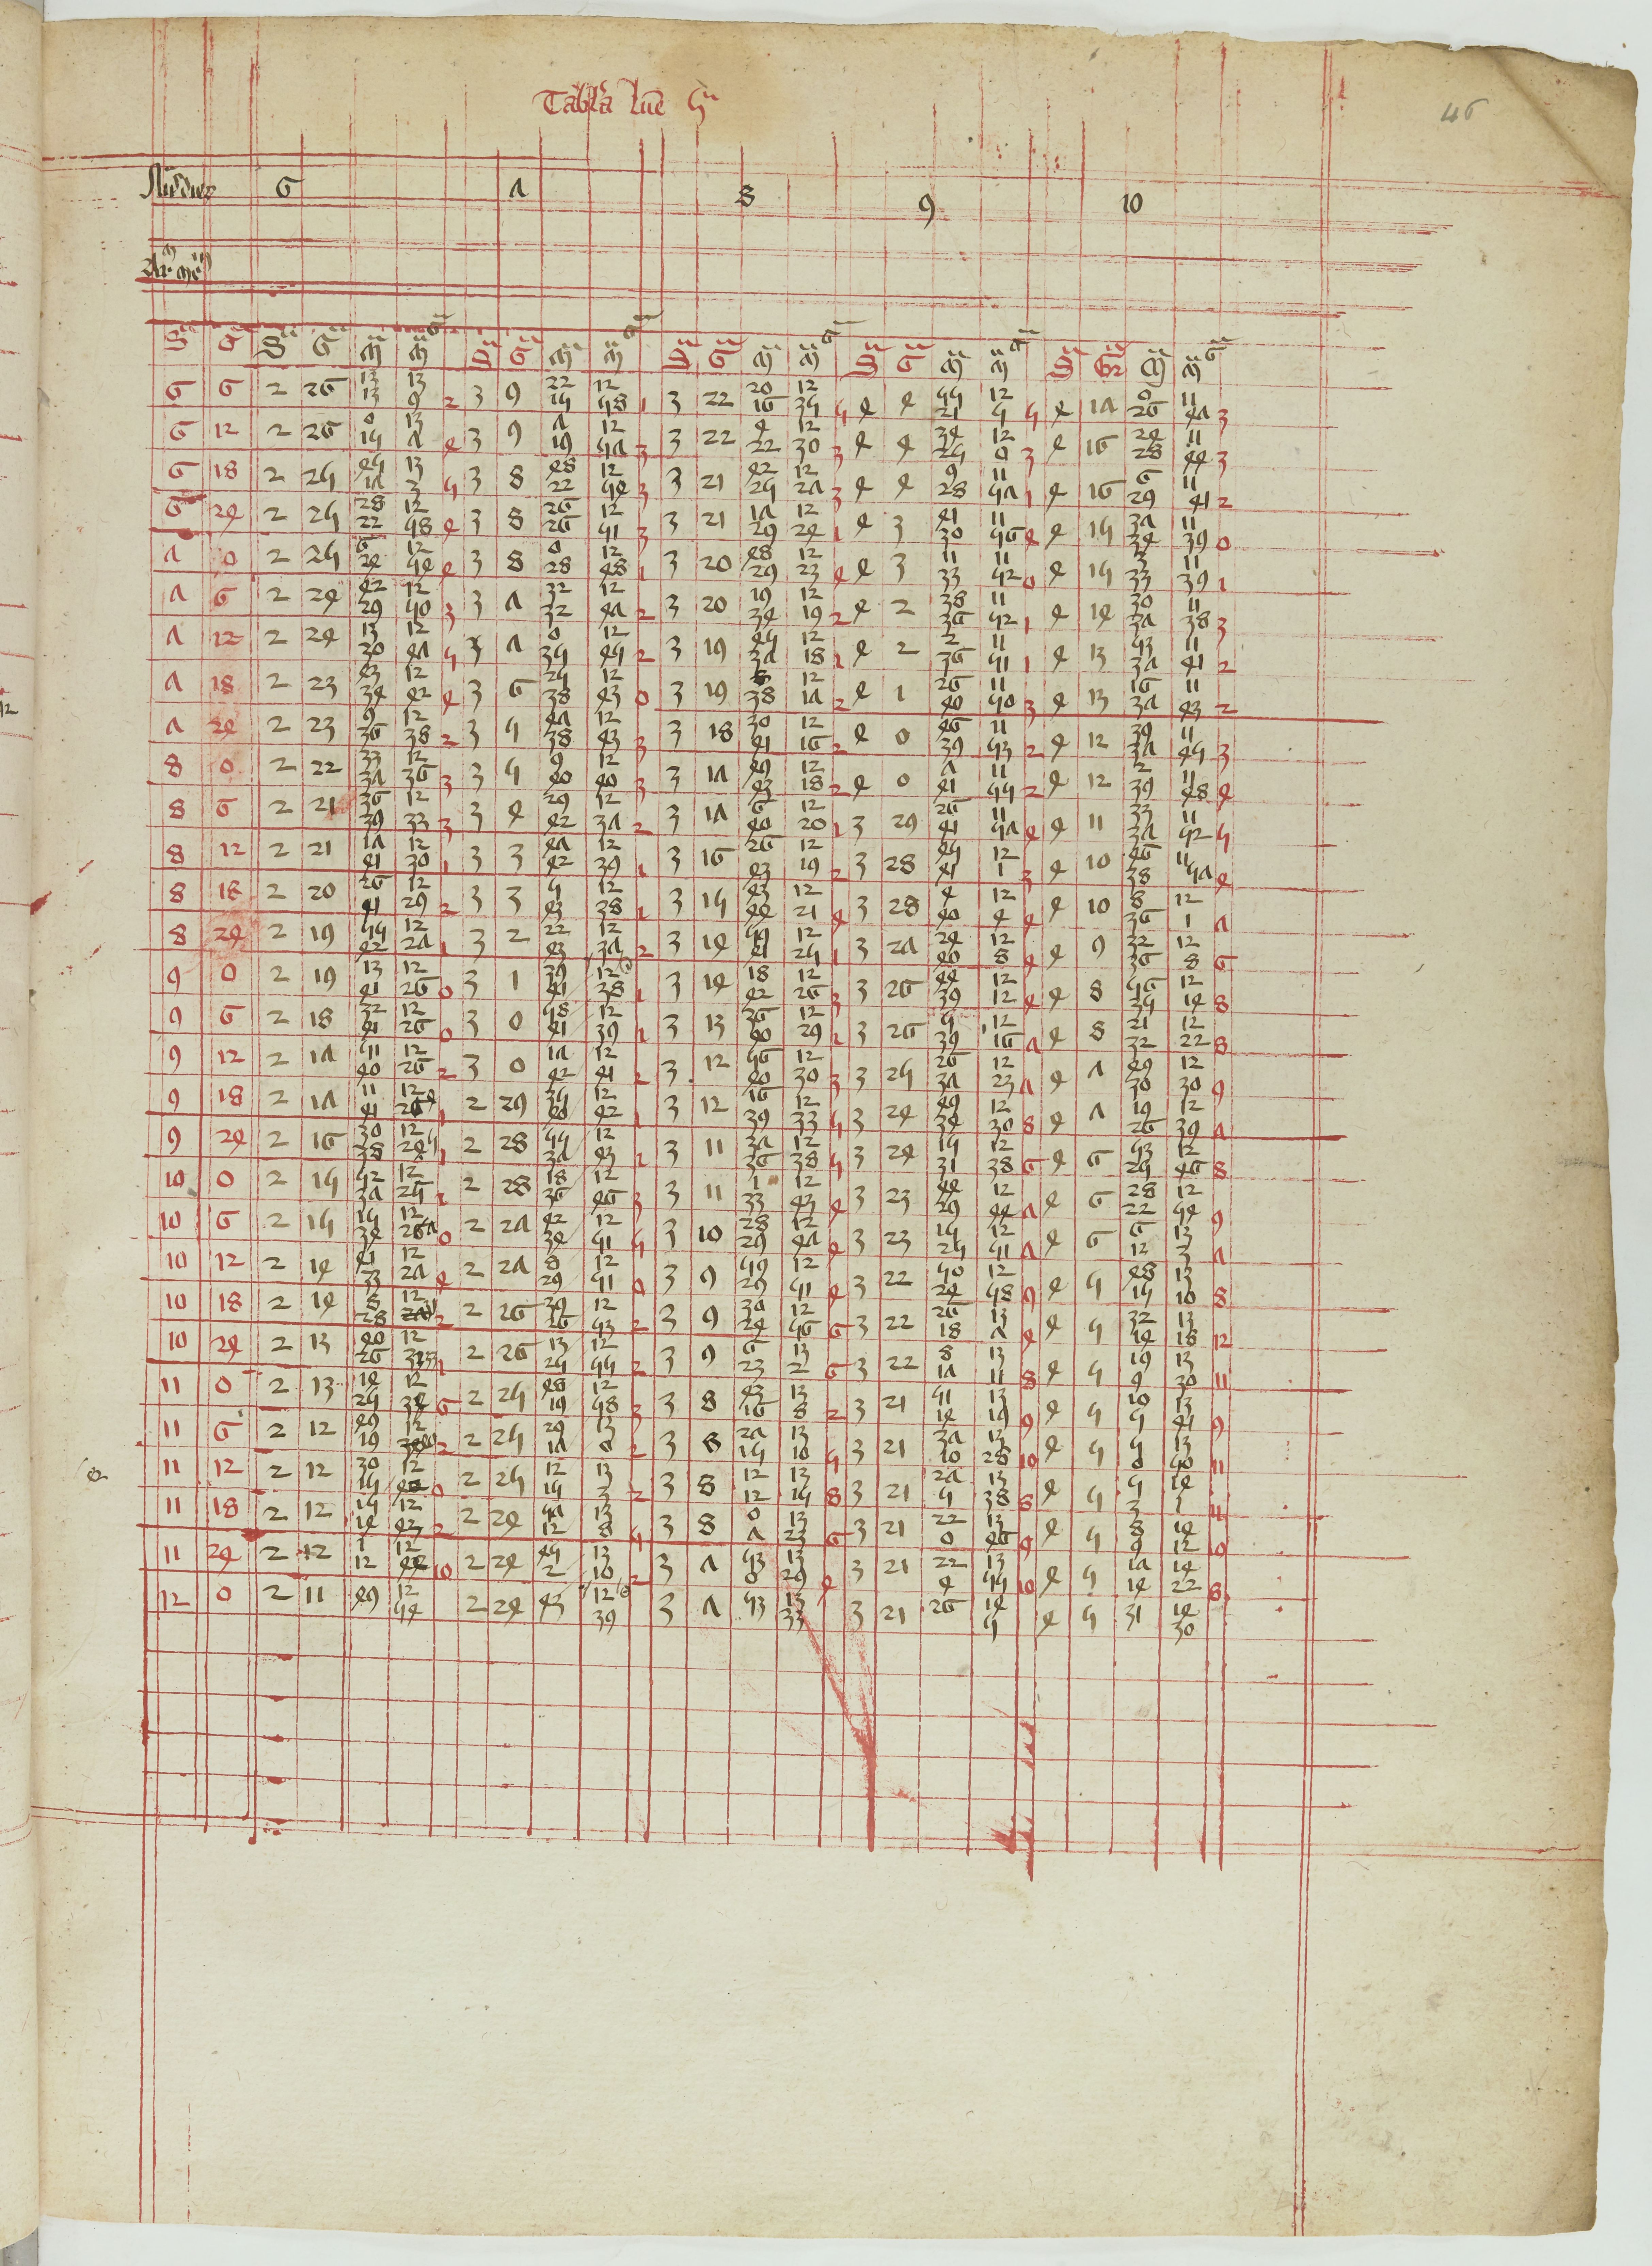 Tabula lune 5ª
46
Nũs dierũ 6 7 8 9 10
S G S G M M G S G M M G S G M M G S G M M G S Gr M M G
6 6 2 26 13 13 13 9 2 3 9 22 15 12 58 1 3 22 20 16 12 35 5 4 4 55 21 12 5 5 4 17 0 26 11 47 3
6 12 2 26 0 15 13 7 4 3 9 7 19 12 57 3 3 22 4 22 12 30 3 4 4 34 25 12 0 3 4 16 24 28 11 44 3
6 18 2 25 45 17 13 3 5 3 8 48 22 12 54 3 3 21 42 25 12 27 3 4 4 9 28 11 57 1 4 16 6 29 11 41 2
6 24 2 25 28 22 12 58 4 3 8 26 26 12 51 3 3 21 17 29 12 24 1 4 3 41 30 11 56 4 4 15 37 34 11 39 0
7 0 2 25 6 24 12 54 4 3 8 0 28 12 48 1 3 20 48 29 12 23 4 4 3 11 33 11 52 0 4 15 3 33 11 39 1
7 6 2 24 42 29 12 50 3 3 7 32 32 12 47 2 3 20 19 34 12 19 2 4 2 38 36 11 52 1 4 14 30 37 11 38 3
7 12 2 24 13 30 12 47 5 3 7 0 35 12 45 2 3 19 45 37 12 18 1 4 2 2 36 11 51 1 4 13 53 37 11 41 2
7 18 2 23 43 34 12 42 4 3 6 25 38 12 43 0 3 19 8 38 12 17 2 4 1 26 40 11 50 3 4 13 16 37 11 43 2
7 24 2 23 9 36 12 38 2 3 5 47 38 12 43 3 3 18 30 41 12 16 2 4 0 46 39 11 53 2 4 12 39 37 11 45 3
8 0 2 22 33 37 12 36 3 3 5 9 40 12 40 3 3 17 49 43 12 18 2 4 0 7 41 11 55 2 4 12 2 39 11 48 4
8 6 2 21 36 39 12 33 3 3 4 29 42 12 37 2 3 17 6 40 12 20 1 3 29 26 41 11 57 4 4 11 33 37 11 52 5
8 12 2 21 17 41 12 30 1 3 3 47 42 12 39 1 3 16 26 43 12 19 2 3 28 45 41 12 1 3 4 10 46 38 11 57 4
8 18 2 20 26 41 12 29 2 3 3 5 43 12 38 1 3 15 43 44 12 21 4 3 28 4 40 12 4 4 4 10 8 36 12 1 7
8 24 2 19 55 42 12 27 1 3 2 22 43 12 37 2 3 14 59 41 12 25 1 3 27 24 40 12 8 4 4 9 32 36 12 8 6
9 0 2 19 13 41 12 26 0 3 1 39 41 12 38 1 3 14 18 42 12 26 3 3 26 44 39 12 12 4 4 8 56 35 12 14 8
9 6 2 18 32 41 12 26 0 3 0 58 41 12 39 2 3 13 36 40 12 29 1 3 26 5 39 12 16 7 4 8 21 32 12 22 8
9 12 2 17 51 40 12 26 2 3 0 17 42 12 41 2 3 12 56 40 12 30 3 3 25 26 37 12 23 7 4 7 49 30 12 30 9
9 18 2 17 11 41 12 26 4 1 2 29 35 40 12 42 1 3 12 16 39 12 33 5 3 24 49 34 12 30 8 4 7 19 26 12 39 7
9 24 2 16 30 38 12 24 5 1 2 28 55 37 12 43 2 3 11 37 36 12 38 5 3 24 15 31 12 38 6 4 6 53 25 12 46 8
10 0 2 15 52 37 12 25 2 2 28 18 36 12 46 3 3 11 1 33 12 43 4 3 23 44 29 12 44 7 4 6 28 22 12 54 9
10 6 2 15 15 34 12 26 7 0 2 27 42 34 12 51 5 3 10 28 29 12 47 4 3 23 15 25 12 51 7 4 6 6 12 13 3 7
10 12 2 14 41 33 12 27 4 2 27 8 29 12 51 0 3 9 59 29 12 51 4 3 22 50 24 12 58 9 4 5 48 15 13 10 8
10 18 2 14 8 28 12 2 2 26 39 26 12 53 2 3 9 30 24 12 56 6 3 22 26 18 13 7 4 4 5 32 14 13 18 12
10 24 2 13 40 26 12 33 1 2 26 13 25 12 55 2 3 9 6 23 13 2 6 3 22 8 17 13 11 8 4 5 19 9 13 30 11
11 0 2 13 14 25 12 34 6 2 25 48 19 12 58 2 3 8 43 16 13 8 2 3 21 51 14 13 19 9 4 5 10 5 13 41 9
11 6 2 12 49 19 12 40 2 2 25 29 17 13 0 2 3 8 27 15 13 10 5 3 21 37 10 13 28 10 4 5 5 0 13 50 11
11 12 2 12 30 15 12 42 0 2 25 12 15 13 3 2 3 8 12 12 13 15 8 3 21 27 5 13 38 8 4 5 5 3 14 1 11
11 18 2 12 15 14 12 42 2 2 24 57 12 13 8 5 3 8 0 7 13 23 6 3 21 22 0 13 46 9 4 5 8 9 14 12 10
11 24 2 12 1 12 12 44 10 2 24 45 2 13 10 2 3 7 53 0 13 29 4 3 21 22 4 13 55 10 4 5 17 14 14 22 8
12 0 2 11 49 12 54 2 24 43 12 39 3 7 53 13 33 3 21 26 14 5 4 5 31 14 30